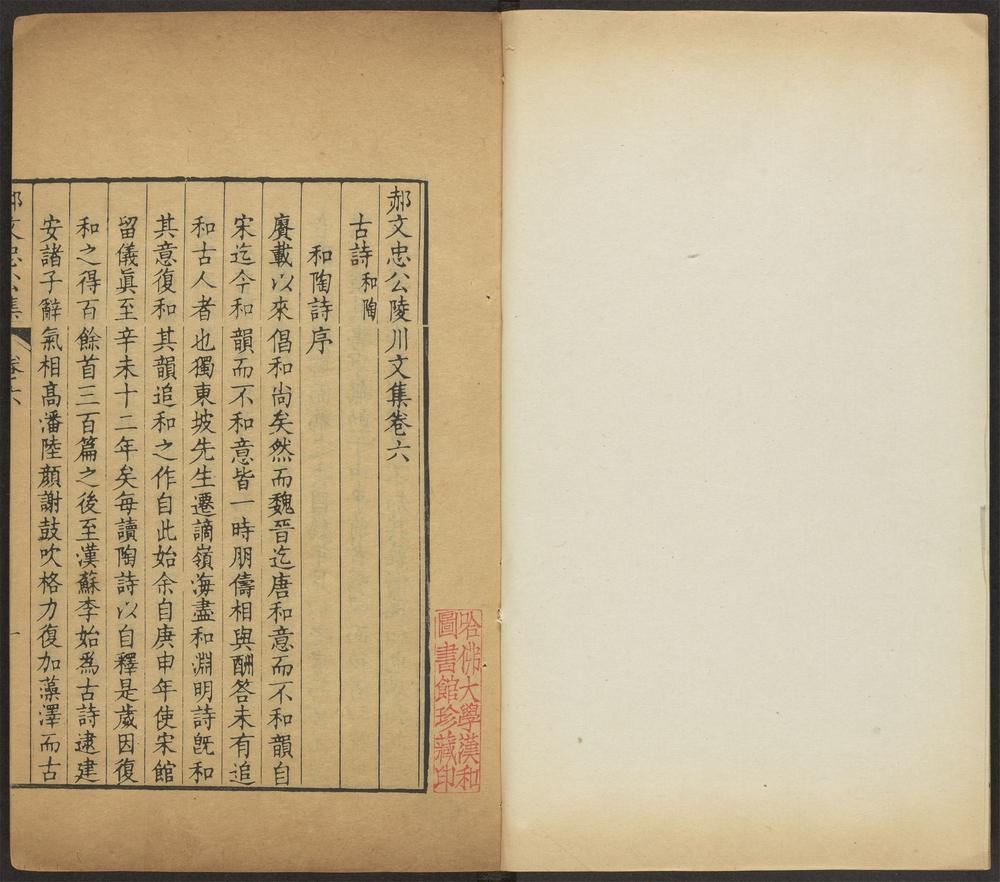 郝文忠公陵川文集卷六
古詩和陶
和陶詩序
賡載以來倡和尚矣然而魏晉迄唐和意而不和韻自
宋迄今和韻而不和意皆一時朋儔相與酬答未有追
和古人者也獨東坡先生遷謫嶺海盡和淵明詩旣和
其意復和其韻追和之作自此始余自庚申年使宋館
留儀眞至辛未十二年矣每讀陶詩以自釋是歲因復
和之得百餘首三百篇之後至漢蘇李始爲古詩逮建
安諸子辭氣相高潘陸顏謝鼓吹格力復加藻澤而古
郝文忠公集
卷六
一
哈佛大學漢和
圖書館珍藏印